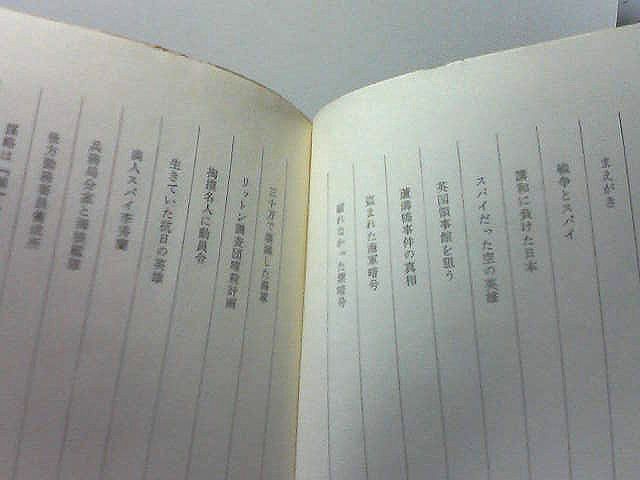 まえがき
戦争とスパイ
諜報に負けた日本
スパイだった空の英雄
英国領事館を狙う
蘆溝橋事件の真相
盗まれた海軍暗号
破れなかった米暗号
三千万で
リットン調査団暗殺計画
掏摸名人に動員令
生きていた抗日の英雄
美人スパイ李秀蘭
兵務局分室と
後方勤務要員養成所
謀略は